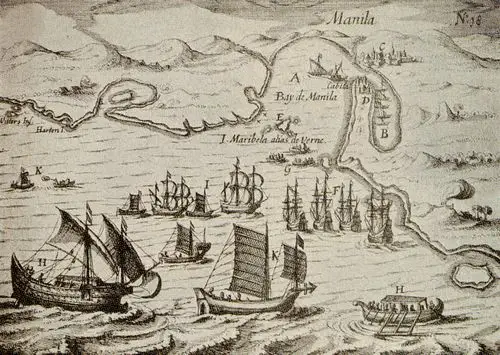 Manila
N.º 18
C
A
Cabita
Bay de Manila
D
E
B
I. Maribela alias de Verne.
Harten I.
K
G
I
F
H
K
H